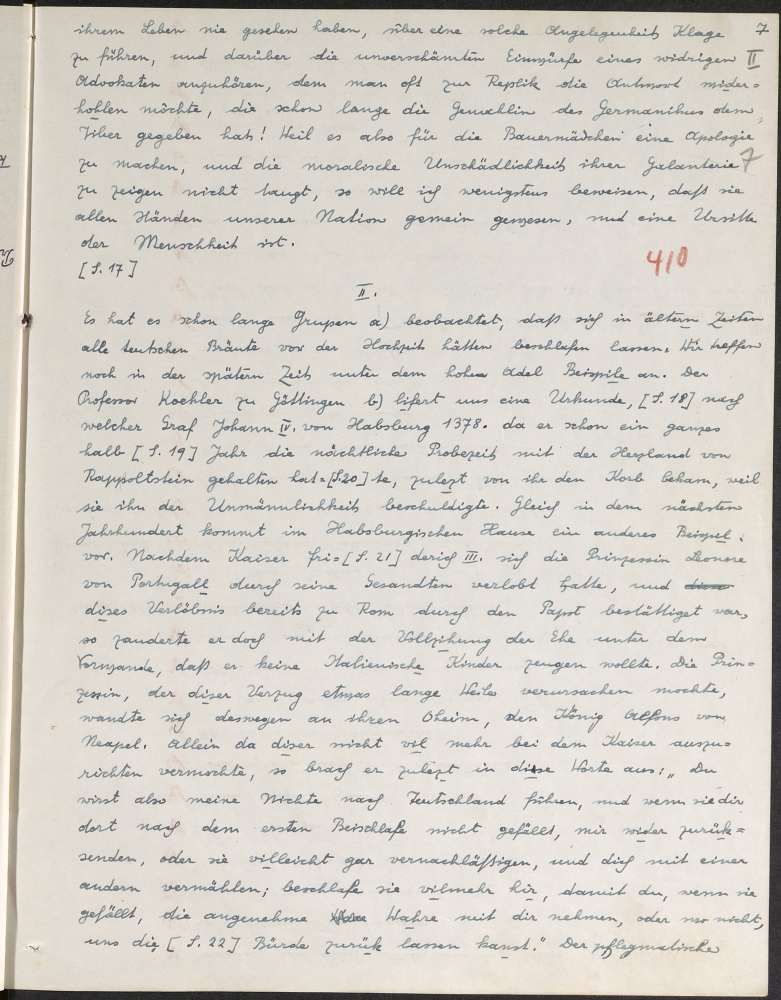 7
ihrem Leben nie gesehen haben, über eine solche Angelegenheit Klage
zu führen, und darüber die unverschämten Einwürfe eines widrigen II
Advokaten anzuhören, dem man oft zur Replik die Antwort wider=
hohlen möchte, die schon lange die Gemahlin des Germanikus dem
Tiber gegeben hat! Weil es also für die Bauermädchen eine Apologie
zu machen, und die moralische Unschädlichkeit ihrer Galanterie 7
zu zeigen nicht taugt, so will ich wenigstens beweisen, daß sie
allen Ständen unserer Nation gemein gewesen, und eine Ursitte
der Menschheit ist.
[S. 17]
410
II.
Es hat es schon lange Grupen a) beobachtet, daß sich in ältern Zeiten
alle teutschen Bräute vor der Hochzeit hätten beschlafen lassen. Wir treffen
noch in der spätern Zeit unter dem hohen Adel Beispile an. Der
Professor Koehler zu Göttingen b) lifert uns eine Urkunde, [S. 18] nach
welcher Graf Johann IV. von Habsburg 1378. da er schon ein ganzes
halb [S. 19] Jahr die nächtliche Probezeit mit der Herzland von
Rappoltstein gehalten hat=[S.20]te, zulezt von ihr den Korb bekam, weil
sie ihn der Unmännlichkeit beschuldigte. Gleich in dem nächsten
Jahrhundert kommt im Habsburgischen Hause ein anderes Beispil
vor. Nachdem Kaiser Fri=[S. 21] derich III. sich die Prinzessin Leonore
von Portugall durch seine Gesandten verlobt hatte, und diese
dises Verlöbnis bereits zu Rom durch den Papst bestättiget war,
so zauderte er doch mit der Vollzihung der Ehe unter dem
Vorwande, daß er keine Italienische Kinder zeugen wollte. Die Prin=
zessin, der diser Verzug etwas lange Weile verursachen mochte,
wandte sich deswegen an ihren Oheim, den König Alfons von
Neapel. Allein da diser nicht vil mehr bei dem Kaiser auszu=
richten vermochte, so brach er zulezt in diese Worte aus: „Du
wirst also meine Nichte nach Teutschland führen, und wenn sie dir
dort nach dem ersten Beischlafe nicht gefällt, mir wider zurük=
senden, oder sie villeicht gar vernachläßigen, und dich mit einer
andern vermählen; beschlafe sie vilmehr hir, damit du, wenn sie
gefällt, die angenehme Wahre mit dir nehmen, oder wo nicht,
uns die [S. 22] Bürde zurük lassen kanst." Der pflegmatische